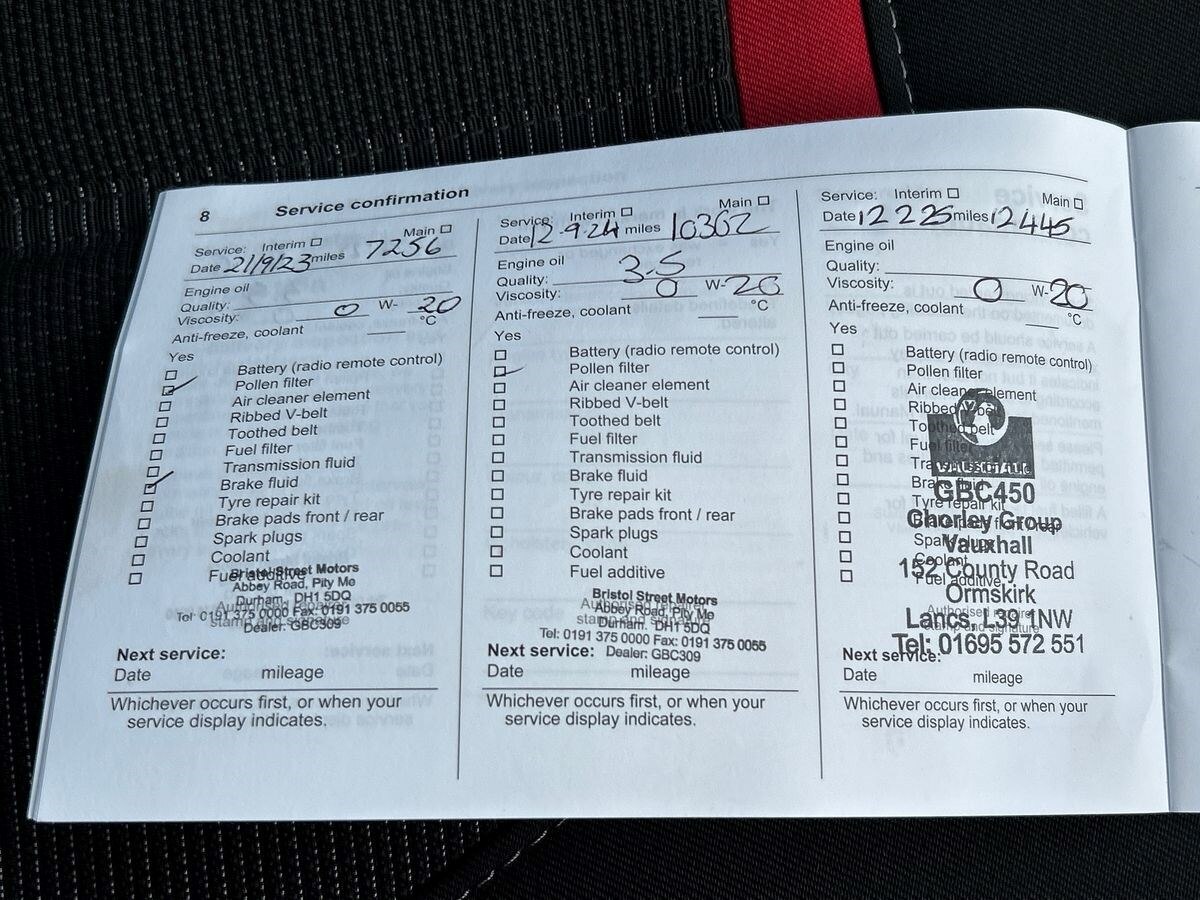 8 Service confirmation
Service: Interim Main
Date 21/9/23 miles 7256
Engine oil
Quality:
Viscosity: 0 W- 20
Anti-freeze, coolant °C
Yes
Battery (radio remote control)
Pollen filter
Air cleaner element
Ribbed V-belt
Toothed belt
Fuel filter
Transmission fluid
Brake fluid
Tyre repair kit
Brake pads front / rear
Spark plugs
Coolant
Fuel additive
Bristol Street Motors
Abbey Road, Pity Me
Durham. DH1 5DQ
Tel: 0191 375 0000 Fax: 0191 375 0055
Dealer: GBC309
Authorised repairer
stamp and signature
Next service:
Date mileage
Whichever occurs first, or when your
service display indicates.
Service: Interim Main
Date 12-9-24 miles 10362
Engine oil
Quality: 3-5
Viscosity: 0 W-20
Anti-freeze, coolant °C
Yes
Battery (radio remote control)
Pollen filter
Air cleaner element
Ribbed V-belt
Toothed belt
Fuel filter
Transmission fluid
Brake fluid
Tyre repair kit
Brake pads front / rear
Spark plugs
Coolant
Fuel additive
Bristol Street Motors
Abbey Road, Pity Me
Durham. DH1 5DQ
Tel: 0191 375 0000 Fax: 0191 375 0055
Dealer: GBC309
Authorised repairer
stamp and signature
Next service:
Date mileage
Whichever occurs first, or when your
service display indicates.
Service: Interim Main
Date 12 2 25 miles 12445
Engine oil
Quality:
Viscosity: 0 W-20
Anti-freeze, coolant °C
Yes
Battery (radio remote control)
Pollen filter
Air cleaner element
Ribbed V-belt
Toothed belt
Fuel filter
Transmission fluid
Brake fluid
Tyre repair kit
Brake pads front / rear
Spark plugs
Coolant
Fuel additive
VAUXHALL
GBC450
Chorley Group
Vauxhall
152 County Road
Ormskirk
Lancs, L39 1NW
Tel: 01695 572 551
Authorised repairer
stamp and signature
Next service:
Date mileage
Whichever occurs first, or when your
service display indicates.